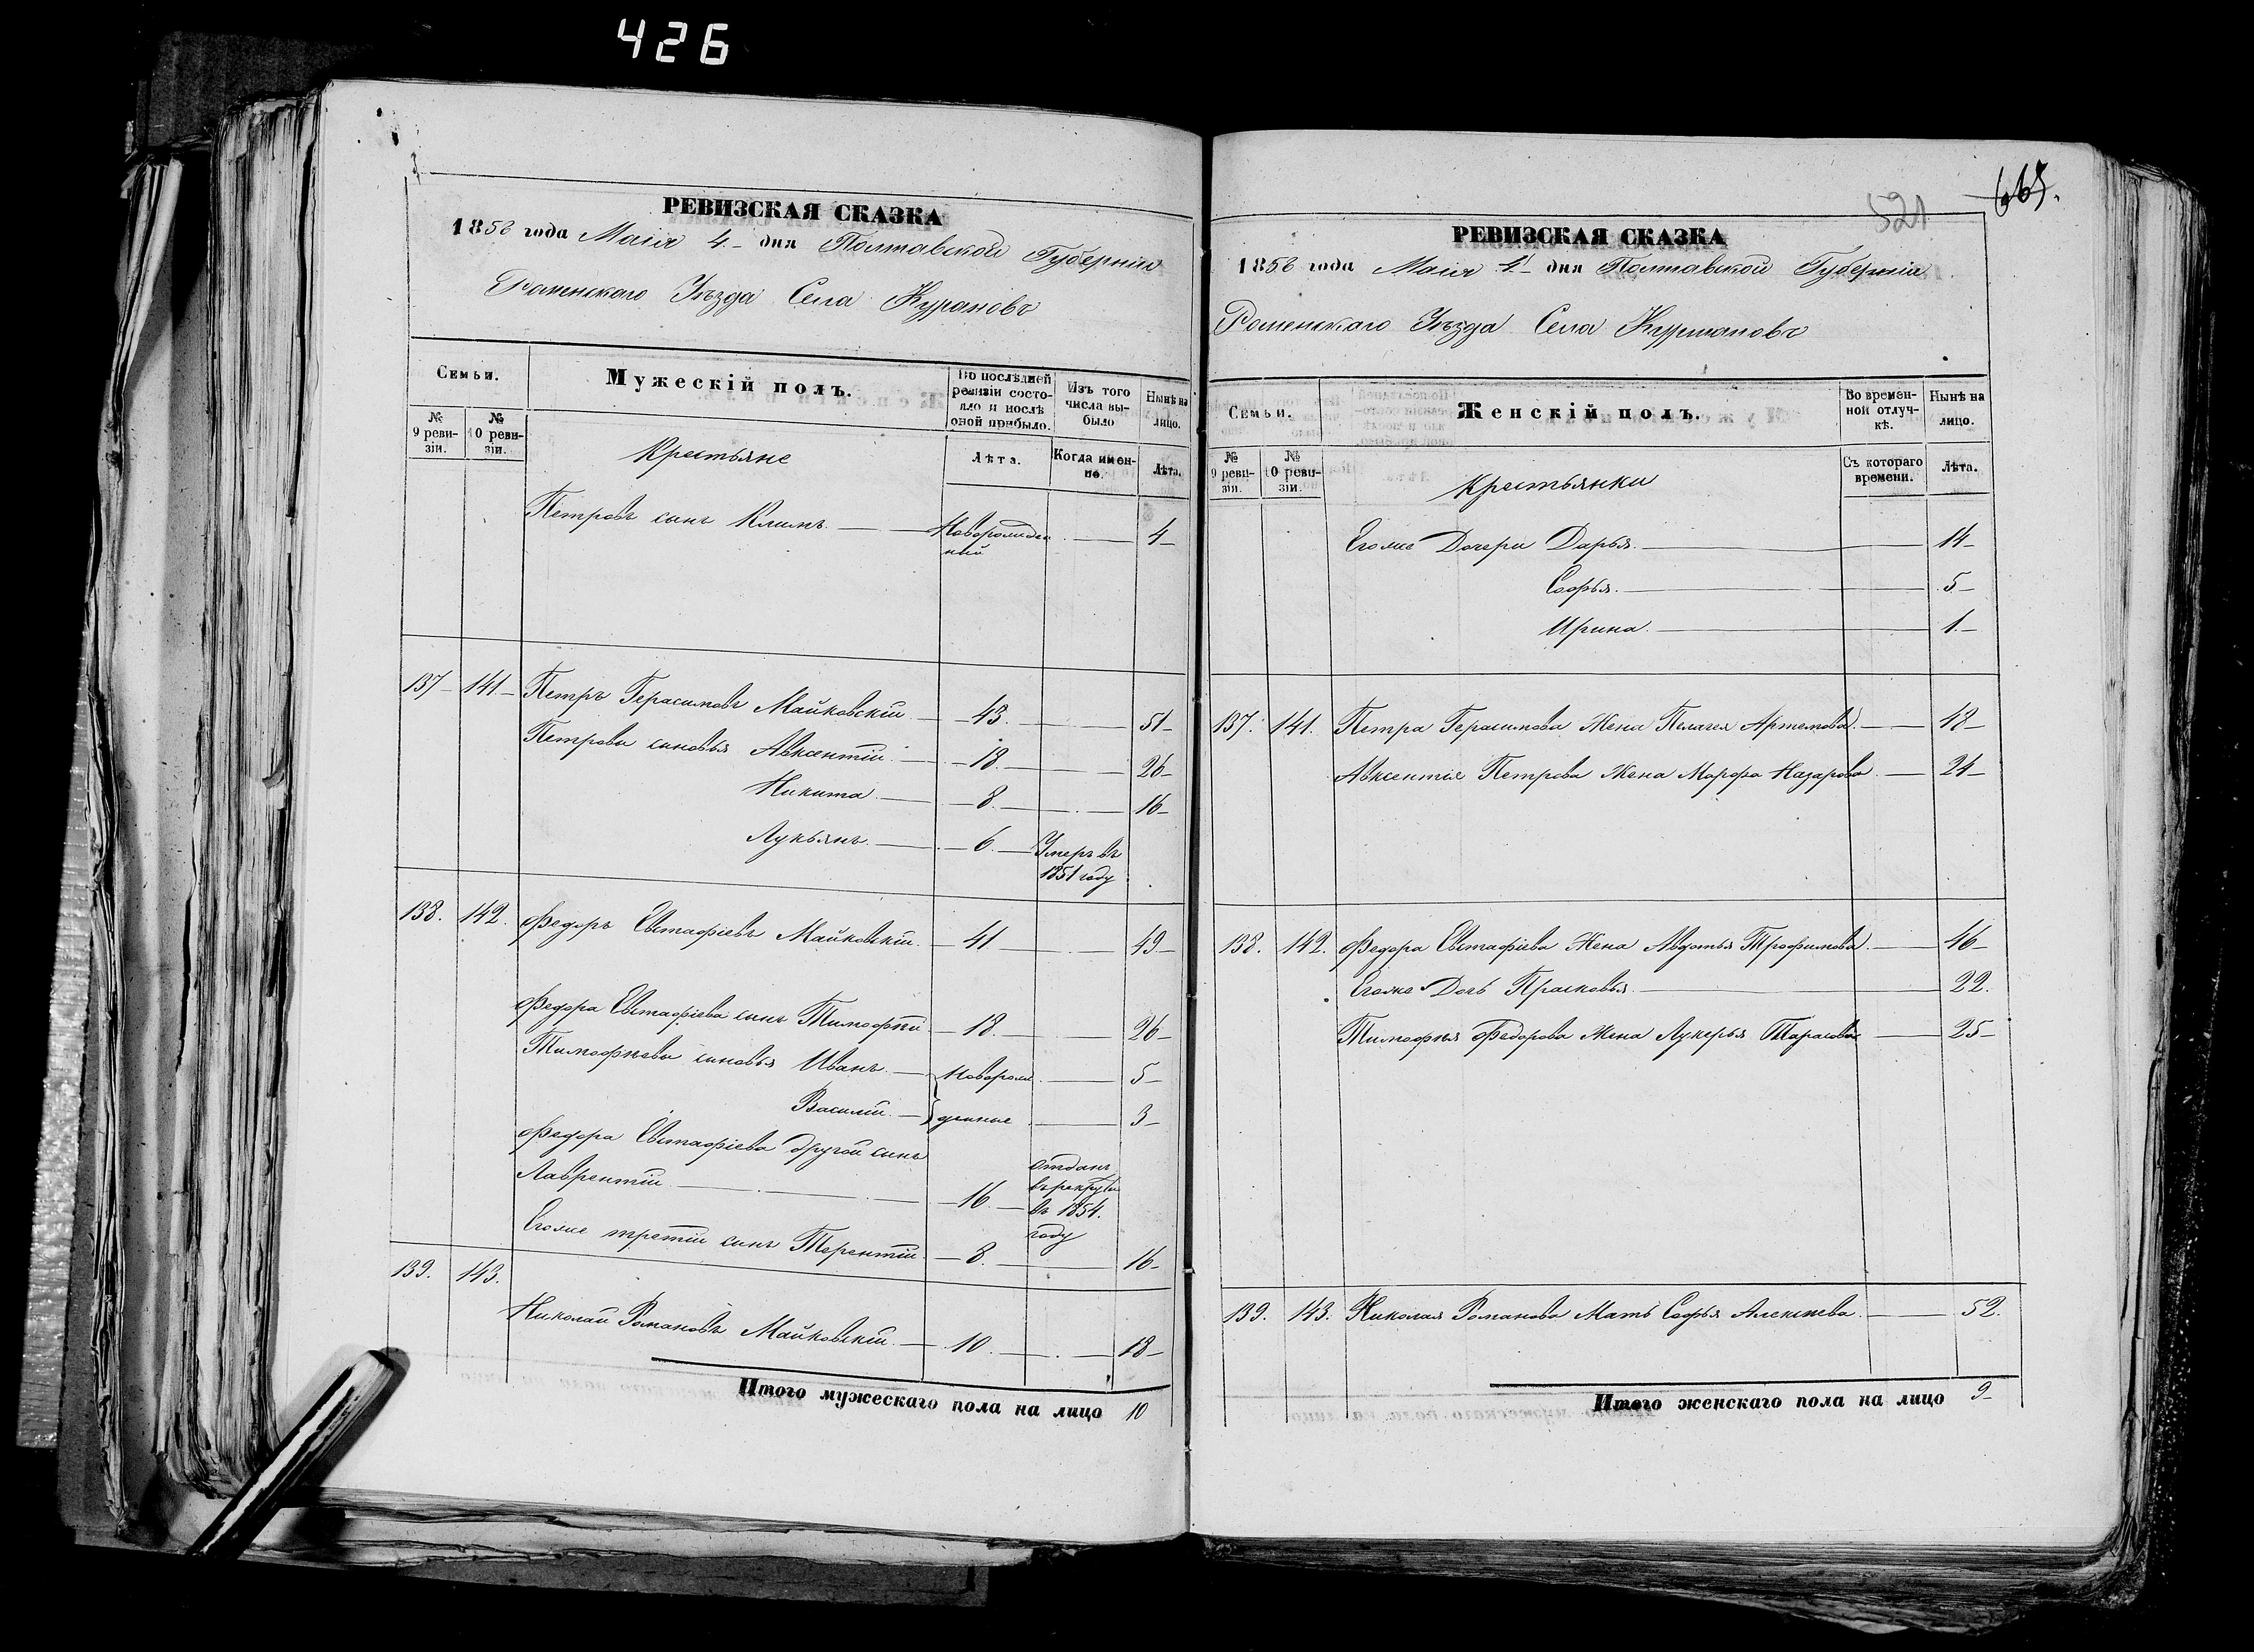 426
РЕВИЗСКАЯ СКАЗКА
1856 года Маія 4 дня Полтавской Губерніи
Роменскаго Уѣзда Села
Семьи.
Мужескій полъ.
Во послѣдней ревизіи состояло и послѣ оной прибыло.
Изъ того числа выбыло
Нынѣ на лицо.
№ 9 ревизіи.
№ 10 ревизіи.
Крестьяне
Лѣта.
Когда именно.
Лѣта.
Петровъ сынъ Климъ. Новорожденный 4
137 141 Петръ Герасимовъ Майковскій 43. 51
Петровы сыновья Авксентій 18. 26
Никита 8. 16
Лукьянъ 6. Умеръ въ
1851 году
138. 142. Федоръ Евстафіевъ Майковскій. 41 49
Федора Евстафіева сынъ Тимофѣй 18. 26
Тимофѣевы сыновья Иванъ Новорож 5
Василій денные 3
Федора Евстафіева другой сынъ
Лаврентій 16. отданъ
въ рекруты
въ 1854.
году
Егоже третій сынъ Терентій 8. 16
139. 143.
Николай Романовъ Майковскій 10. 18
Итого мужескаго пола на лицо 10
665.
521
РЕВИЗСКАЯ СКАЗКА
1856 года Маія 4 дня Полтавской Губерніи
Роменскаго Уѣзда Села Курмановъ
Семьи.
Женскій полъ.
Во временной отлучкѣ.
Нынѣ на лицо.
№ 9 ревизіи.
№ 10 ревизіи.
Крестьянки
Съ котораго времени.
Лѣта.
Егоже Дочери Дарья. 14
Софья. 5
Ирина. 1.
137. 141. Петра Герасимова Жена Пелагея Артемова 48
Авксентія Петрова Жена Марфа Назарова 24
138. 142. Федора Евстафіева Жена Авдотья Трофимова 46
Егоже Дочь Прасковья. 22.
Тимофѣя Федорова Жена Лукерья Тарасова 25
139. 143. Николая Романова Мать Софья Алексѣева 52.
Итого женскаго пола на лицо 9